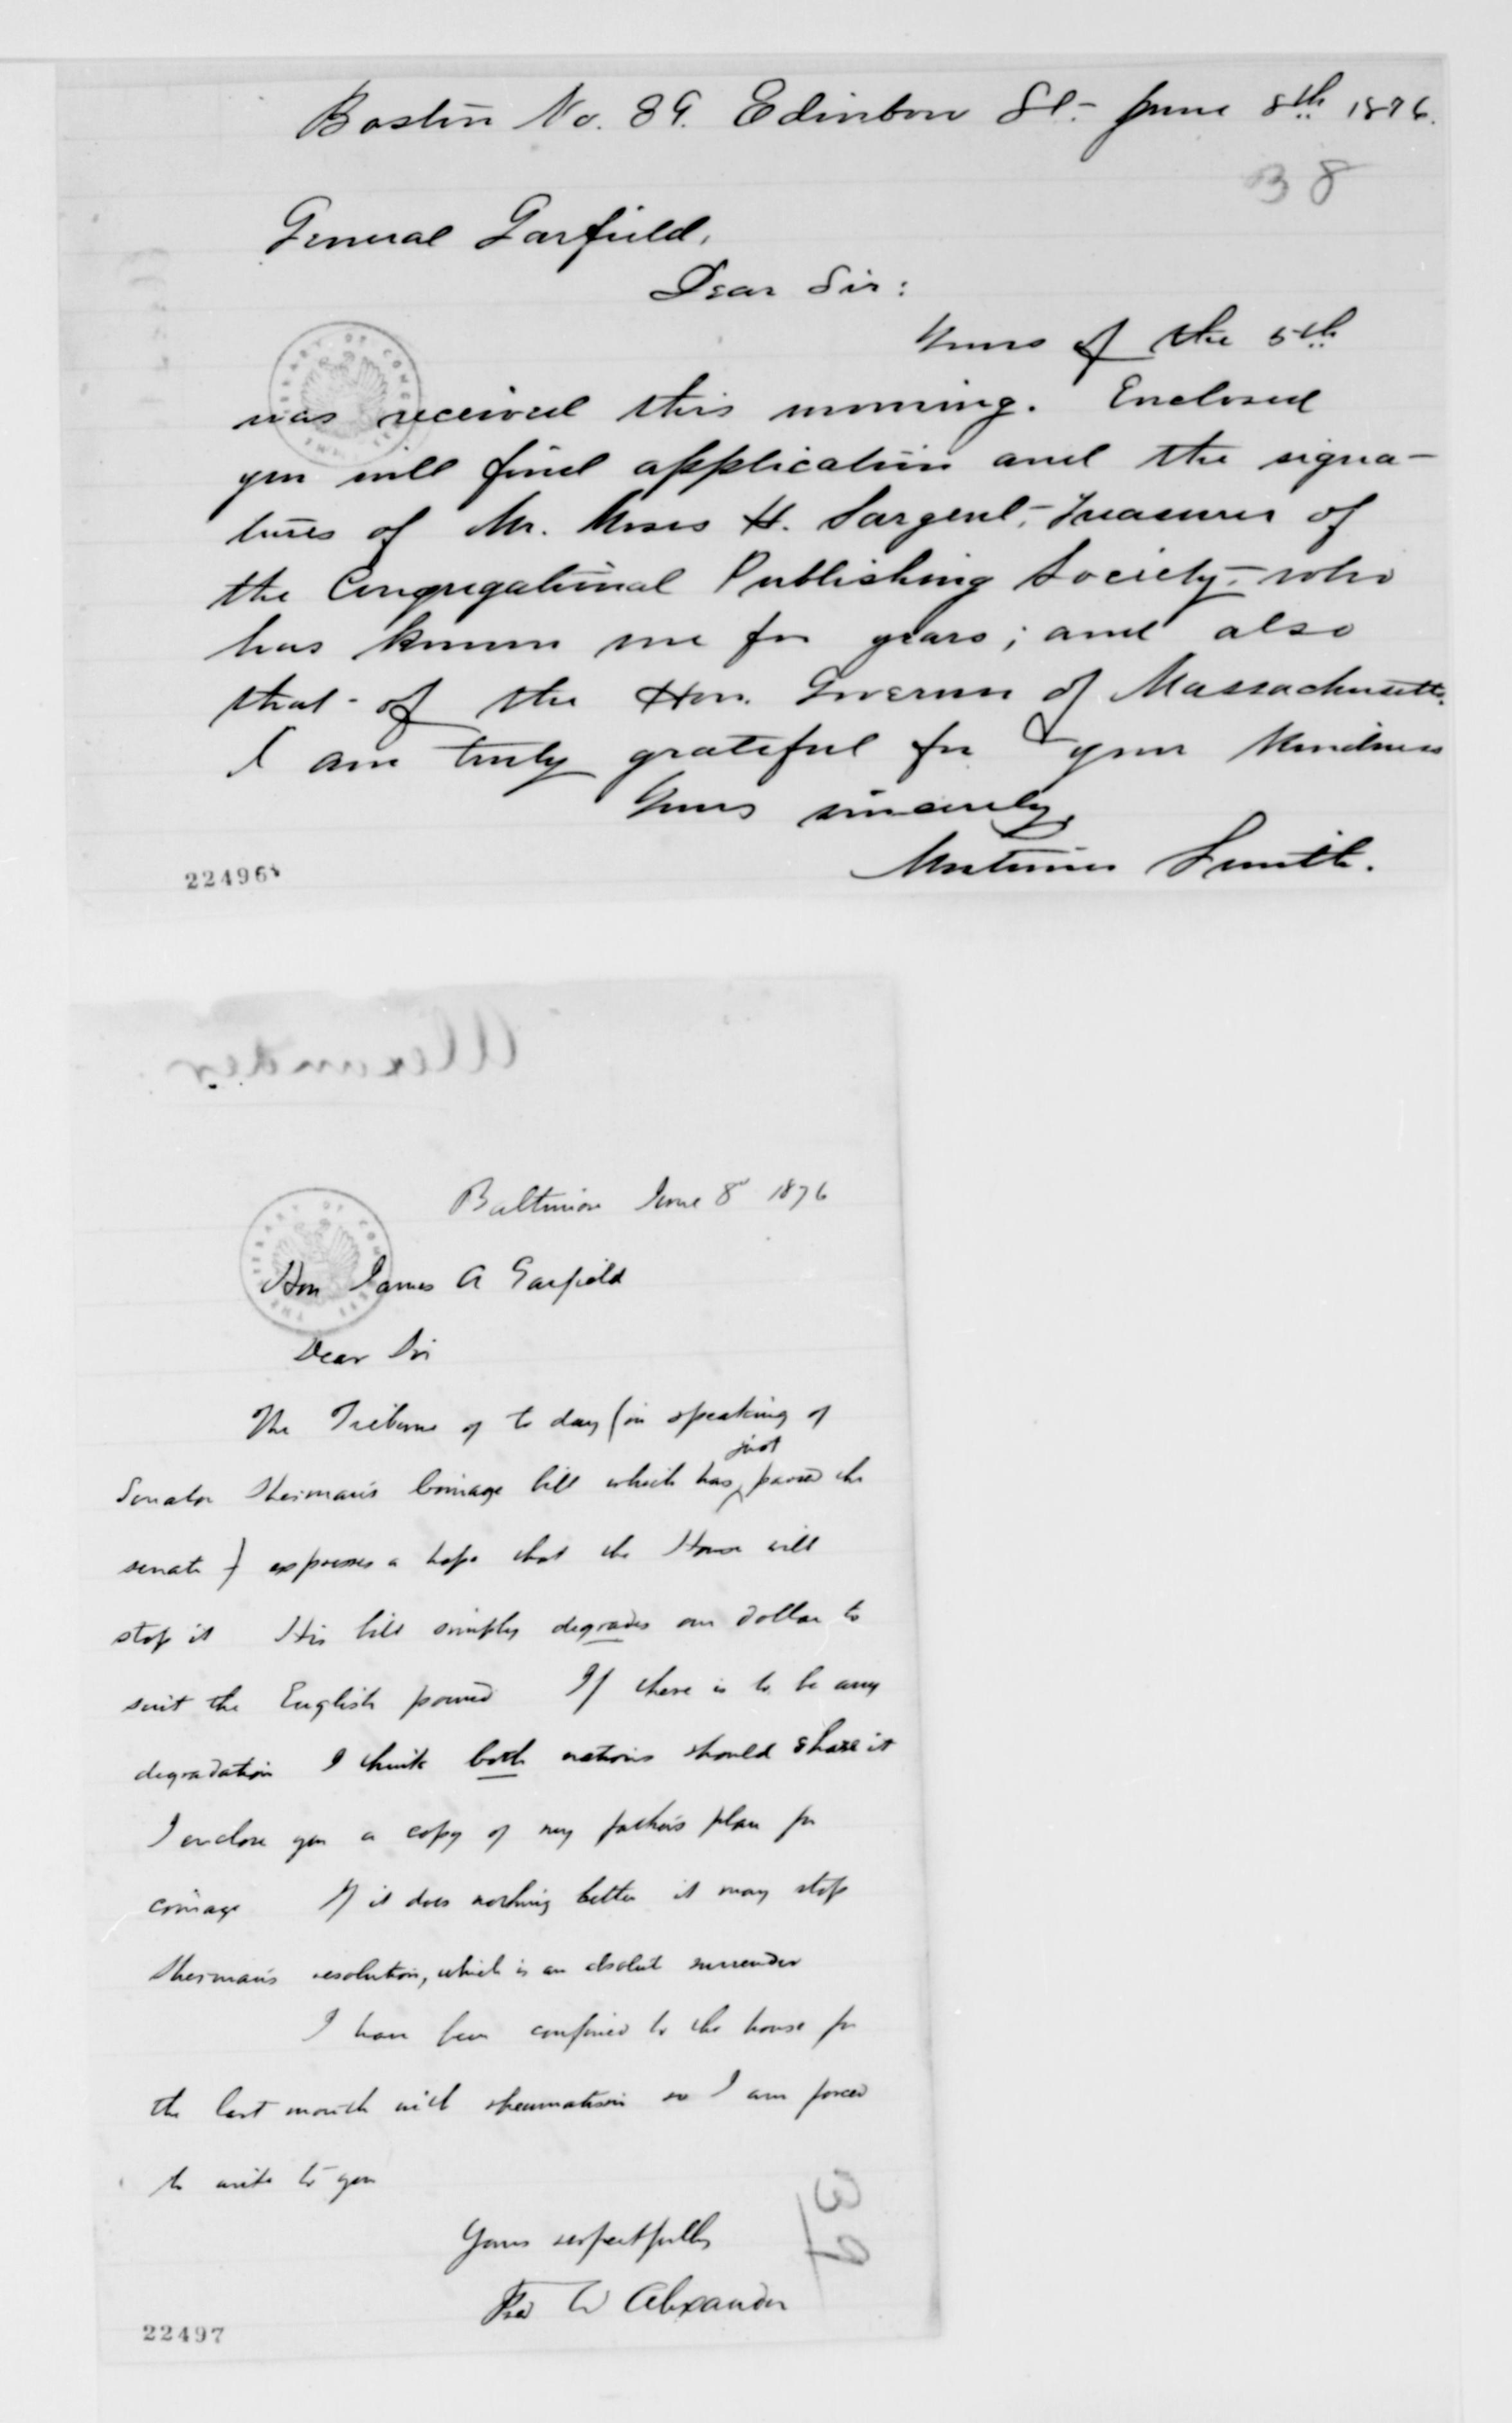 Boston No. 89. Edinboro St. June 8th 1876.
38
General Garfield,
Dear Sir:
Yours of the 5th
was received this morning. Enclosed
you will find application and the signa-
tures of Mr. Moses H. Sargent, Treasurer of
the Congregational Publishing Society, who
has known me for years; and also
that of the Hon. Governor of Massachusetts.
I am truly grateful for your kindness
Yours sincerely,
Smith.
22496
Alexander
Baltimore June 8 1876
Hon James A Garfield
Dear Sir
The Tribune of to day (in speaking of
just
Senator Sherman's Coinage bill which has passed the
senate) expresses a hope that the House will
stop it His bill simply degrades our dollar to
suit the English pound If there is to be any
degradation I think both nations should share it
I enclose you a copy of my father's plan for
coinage If it does nothing better it may stop
Sherman's resolution, which is an absolut surrender
I have been confined to the house for
the last month with rheumatism so I am forced
to write to you
39
Yours respectfully
W Alexander
22497